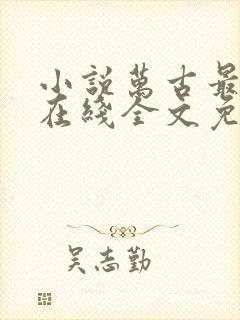 小說萬古最
在綫全文免
吴志勤